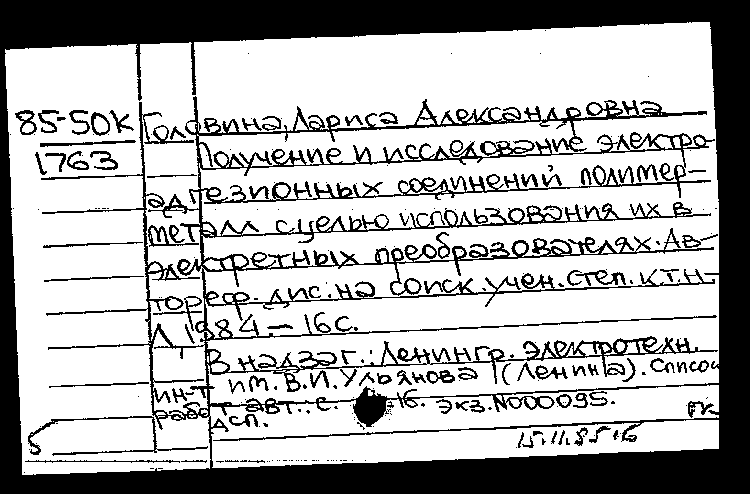 85-50К Головина, Лариса Александровна
1763 Получение и исследование электро-
адгезионных соединений полимер-
металл с целью использования их в
электретных преобразователях. Ав-
тореф. дис. на соиск. учен. степ. к.т.н.
Л, 1984. – 16 с.
В надзаг.: Ленингр. электротехн.
ин-т им. В.И. Ульянова (Ленина). Список
работ авт.: с. 16. Экз. N000095.
дсп. ГК
5 15.11.85